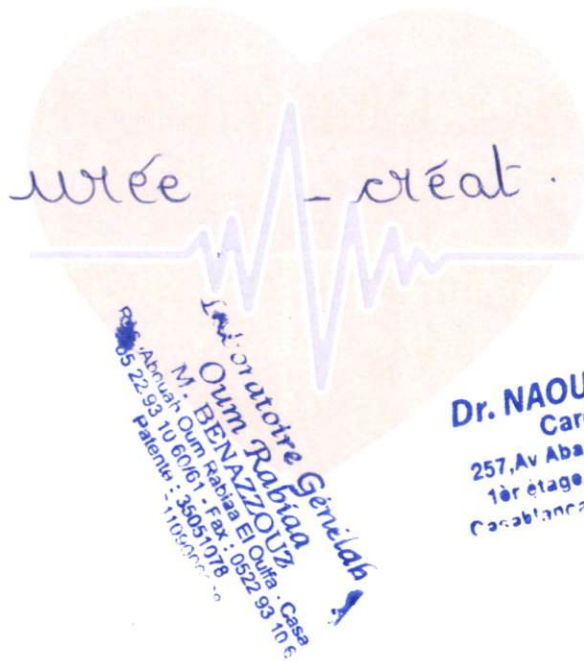 urée - créat.
Laboratoire Génélab
Oum Rabiaa
M. BENAZZOUZ
Abouah Oum Rabiaa El Oulfa . Casa
05 22 93 10 60/61 - Fax : 0522 93 10 6
Patente : 35051078
Dr. NAOU
Car
257,Av Aba
1èr étage
Casablanca